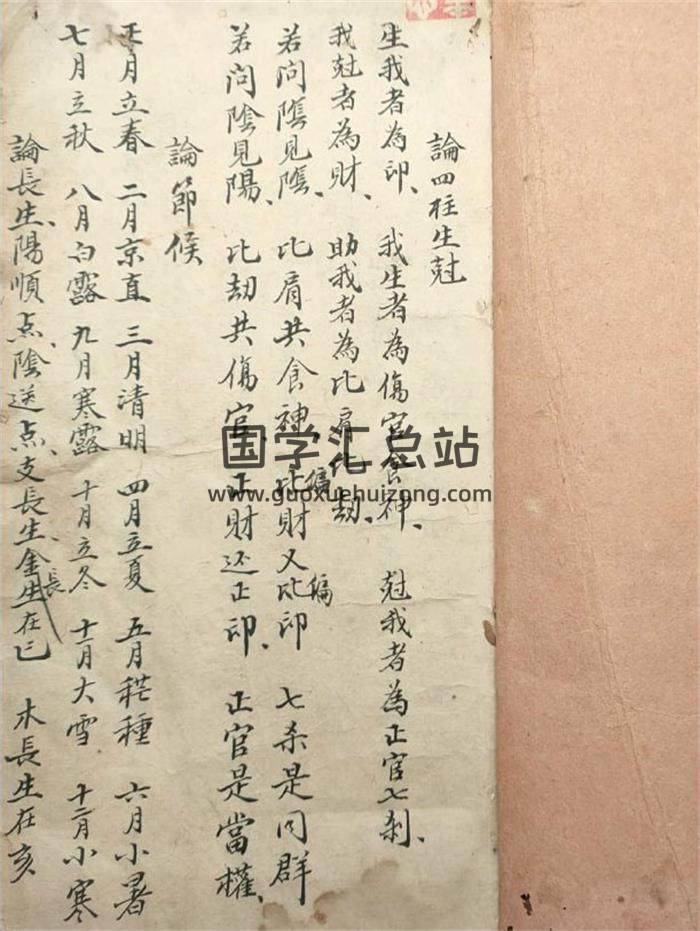 論四柱生尅
生我者為印、 我生者為傷官食神、 尅我者為正官七剎、
我尅者為財、 助我者為比肩比劫、
若问陰見陰、 比肩共食神、比財又比印 七杀是同群
偏 偏
若问陰見陽、 比劫共傷官、正財还正印、 正官是當權、
論節候
正月立春 二月京直 三月清明 四月立夏 五月芒種 六月小暑
七月立秋 八月白露 九月寒露 十月立冬 十一月大雪 十二月小寒
論長生、陽順点、陰送点、支長生、金生在巳 木長生在亥
長
国学汇总站
www.guoxuehuizong.com